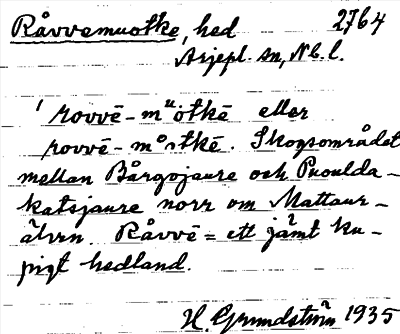 Råvvemuotke, hed 2764
Arjepl. sn, Nb. l.
rovvē-muotkē eller
rovvē-moatkē. Skogsområdet
mellan Bårgojaure och Puoulda-
katsjaure norr om Mattaur-
älven. Råvvē = ett jämt ku-
pigt hedland.
H. Grundström 1935